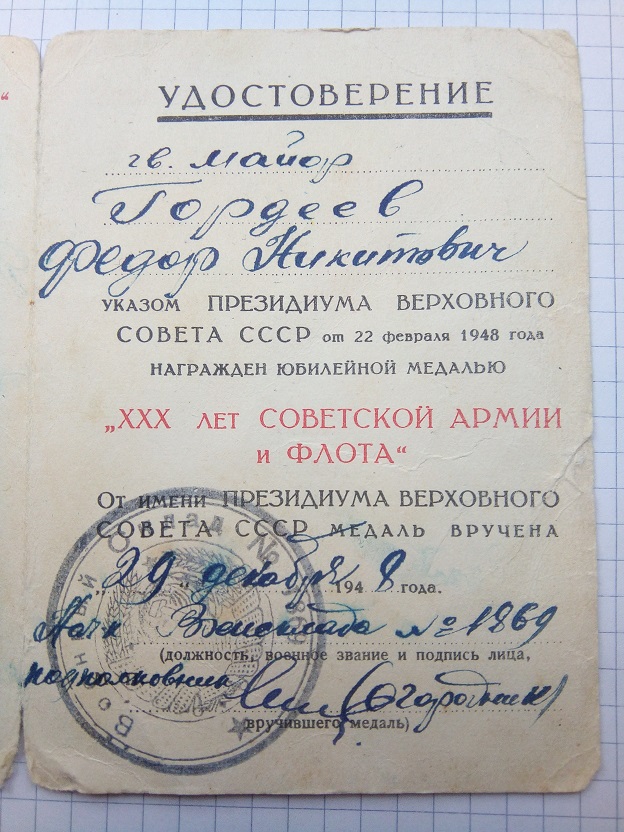 “
УДОСТОВЕРЕНИЕ
гв. майор
Гордеев
Федор Никитович
УКАЗОМ ПРЕЗИДИУМА ВЕРХОВНОГО
СОВЕТА СССР от 22 февраля 1948 года
НАГРАЖДЕН ЮБИЛЕЙНОЙ МЕДАЛЬЮ
„XXX ЛЕТ СОВЕТСКОЙ АРМИИ
И ФЛОТА“
От имени ПРЕЗИДИУМА ВЕРХОВНОГО
СОВЕТА СССР МЕДАЛЬ ВРУЧЕНА
„29„ декабря 1948 года.
Нач Военсклада № 1869
(должность, военное звание и подпись лица,
подполковник (Огородник)
вручившего медаль)
Военный Склад № 1869